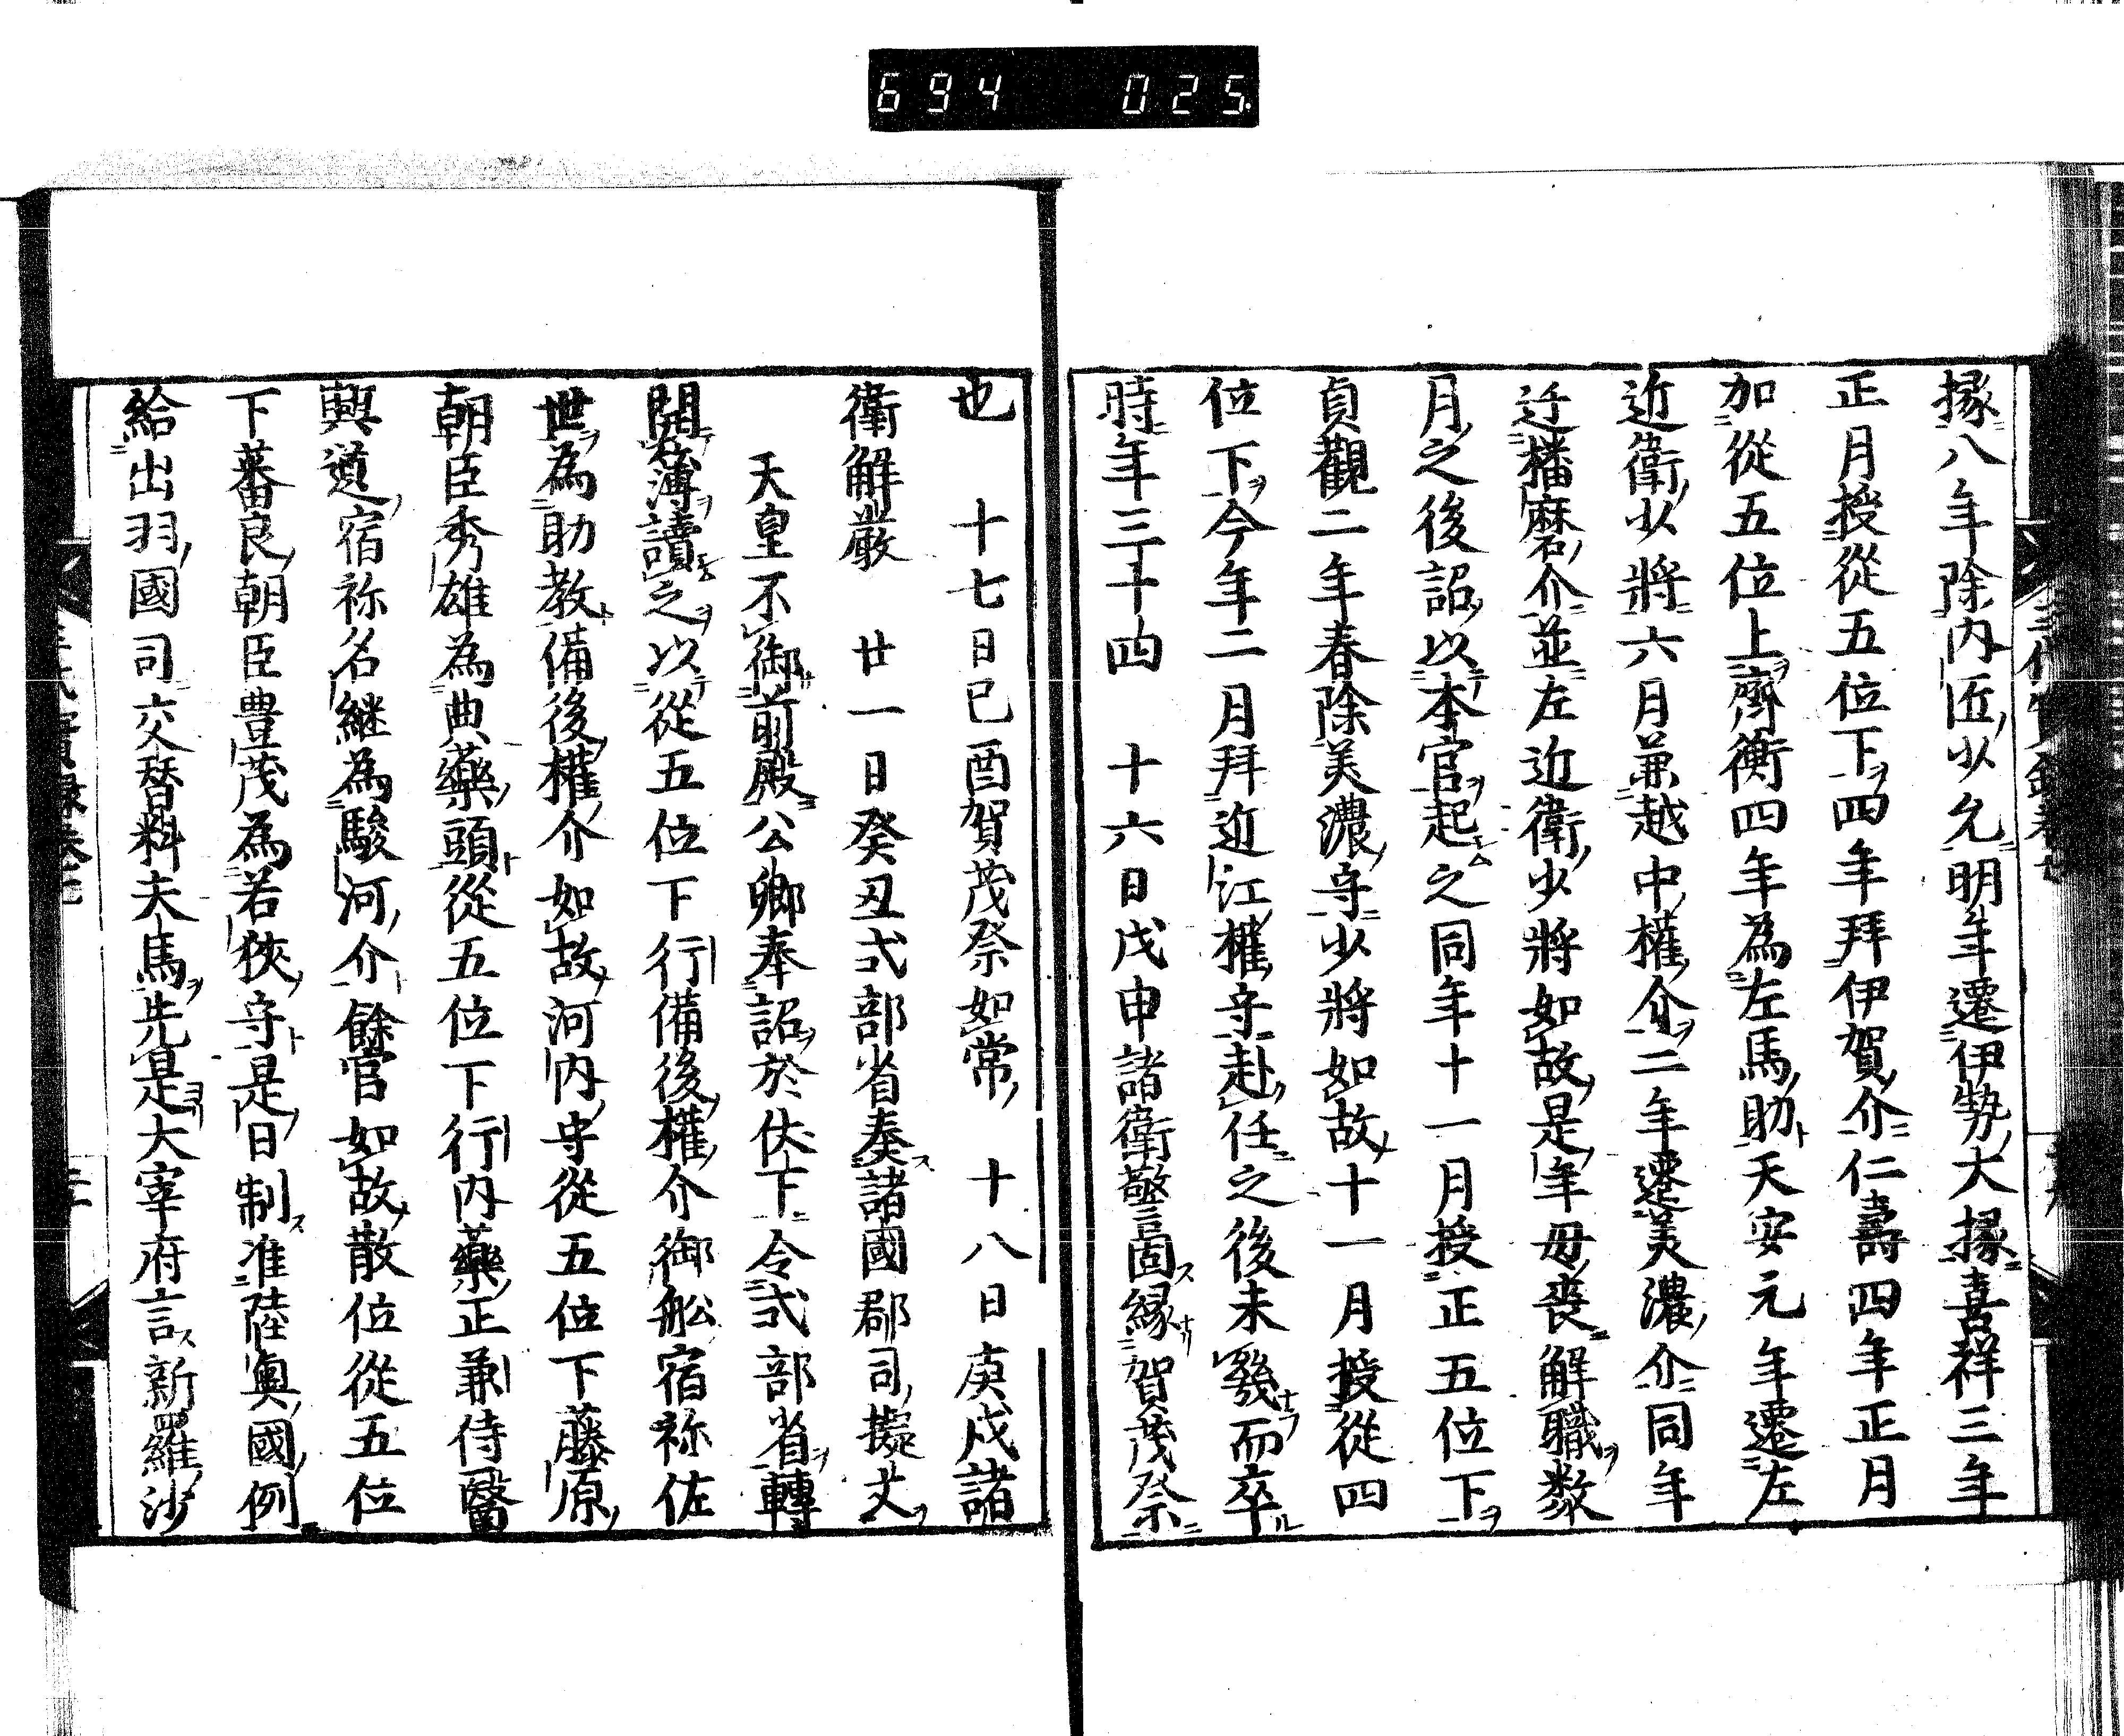 694 025
掾八年除内匠少允明年遷伊勢大掾喜祥三年
正月授從五位下四年拜伊賀介仁壽四年正月
加從五位上齊衡四年為左馬助天安元年遷左
近衛少將六月兼越中權介二年遷美濃介同年
迁播磨介並左近衛少將如故是年毋喪解職数
月之後詔以本官起之同年十一月授正五位下
貞觀二年春除美濃守少將如故十一月授從四
位下今年二月拜近江權守赴任之後未發而卒
時年三十四　十六日戊申諸衛警固縁賀茂祭
也　十七日己酉賀茂祭如常　十八日庚戌諸
衛解嚴　廿一日癸丑式部省奏諸國郡司擬文
天皇不御前殿公卿奉詔於仗下令式部省轉
開簿讀之以從五位下行備後權介御舩宿祢佐
世為助教備後權介如故河内守從五位下藤原
朝臣秀雄為典藥頭從五位下行内藥正兼侍醫
興道宿祢名継為駿河介餘官如故散位從五位
下蕃良朝臣豊茂為若狹守是日制准陸奥國例
給出羽國司交替料夫馬先是大宰府言新羅沙